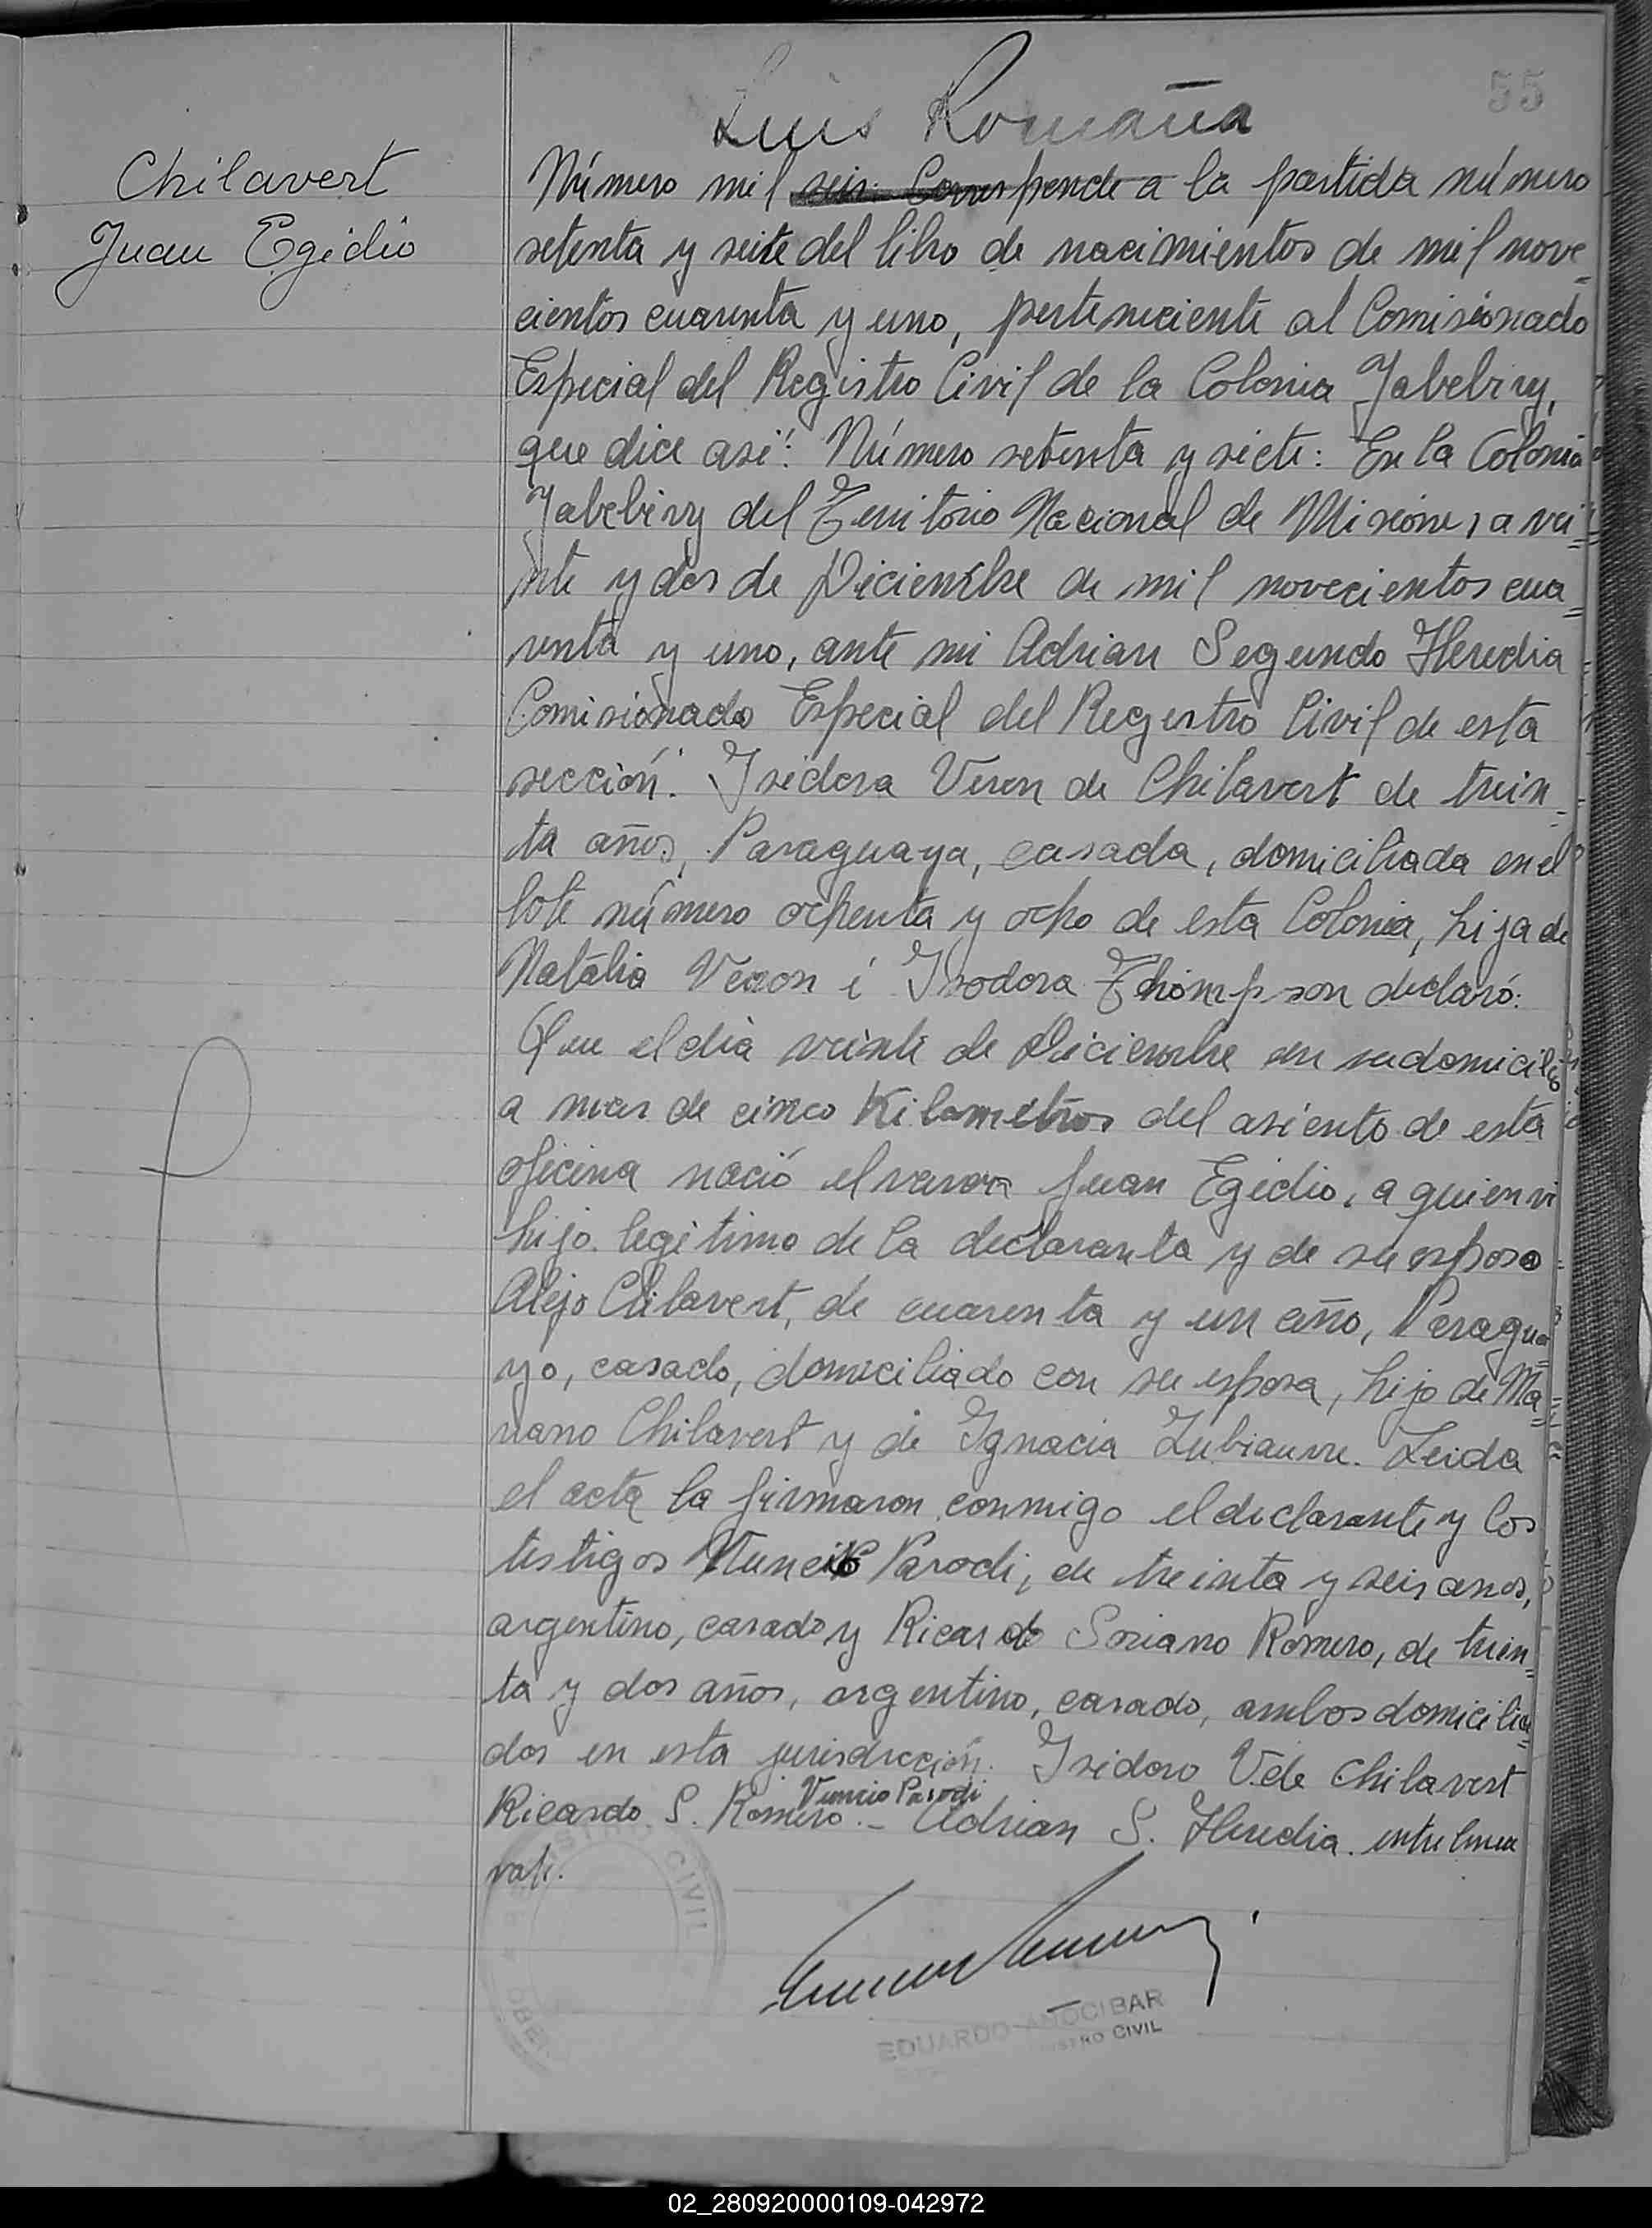 55
Luis Romaña
Chilavert
Juan Egidio
Número mil seis. Corresponde a la partida número
setenta y seite del libro de nacimientos de mil nove=
cientos cuarenta y uno, perteneciente al Comisionado
Especial del Registro Civil de la Colonia Yabebiry,
que dice así: Número setenta y siete: En la Colonia
Yabebiry del Territorio Nacional de Misiones, a vei=
nte y dos de Diciembre de mil novecientos cua=
renta y uno, ante mi Adrian Segundo Heredia
Comisionado Especial del Registro Civil de esta
sección: Isidora Veron de Chilavert de trein-
ta años, Paraguaya, casada, domiciliada en el
lote número ochenta y ocho de esta Colonia, hija de
Natalia Veron i Isodora Thompson declaró:
Que el dia veinte de Diciembre en su domicilio
a mas de cinco Kilometros del asiento de esta
oficina nació el varon Juan Egidio, a quien vi
hijo legitimo de la declaranta y de su esposo
Alejo Chilavert, de cuarenta y un año, Paragua=
yo, casado, domiciliado con su esposa, hijo de Ma=
riano Chilavert y de Ignacia Zubiaurre. Leida
el acta la firmaron conmigo el declarante y los
testigos Nuncio Parodi, de treinta y seis anos,
argentino, casado y Ricardo Soriano Romero, de trein=
ta y dos años, argentino, casado, ambos domicilia=
dos en esta jurisdicción. Isidoro V. de Chilavert
Vuncio Parodi
Ricardo S. Romero.- Adrian S. Heredia. entrelinea
vale.
CIVIL
EDUARDO ANOCIBAR
CIVIL
02_280920000109-042972